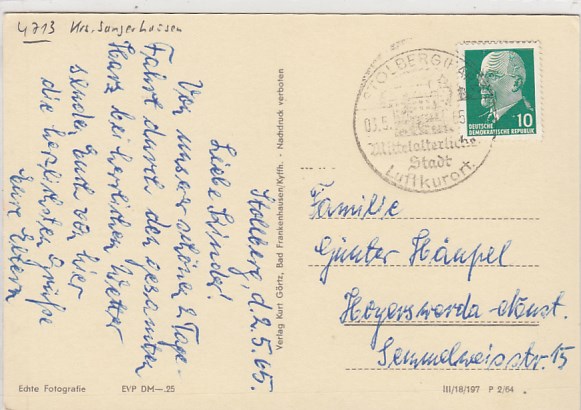 4713 Krs. Sangerhausen
Stolberg, d. 2.5.65.
Liebe Kinder!
Von unser schönen 2 Tage-
Fahrt durch den gesamten
Harz bei herlichen Wetter
senden Euch von hier
die herzlichsten Grüße
Eure Eltern
Verlag Kurt Görtz, Bad Frankenhausen/Kyffh. - Nachdruck verboten
STOLBERG (H
03.5.
Mittelalterliche
Stadt
Luftkurort
DEUTSCHE
DEMOKRATISCHE REPUBLIK
10
Familie
Günter Hänpel
Hoyerswerda-Neust.
Semmelweisstr. 15
Echte Fotografie
EVP DM—.25
III/18/197 P 2/64